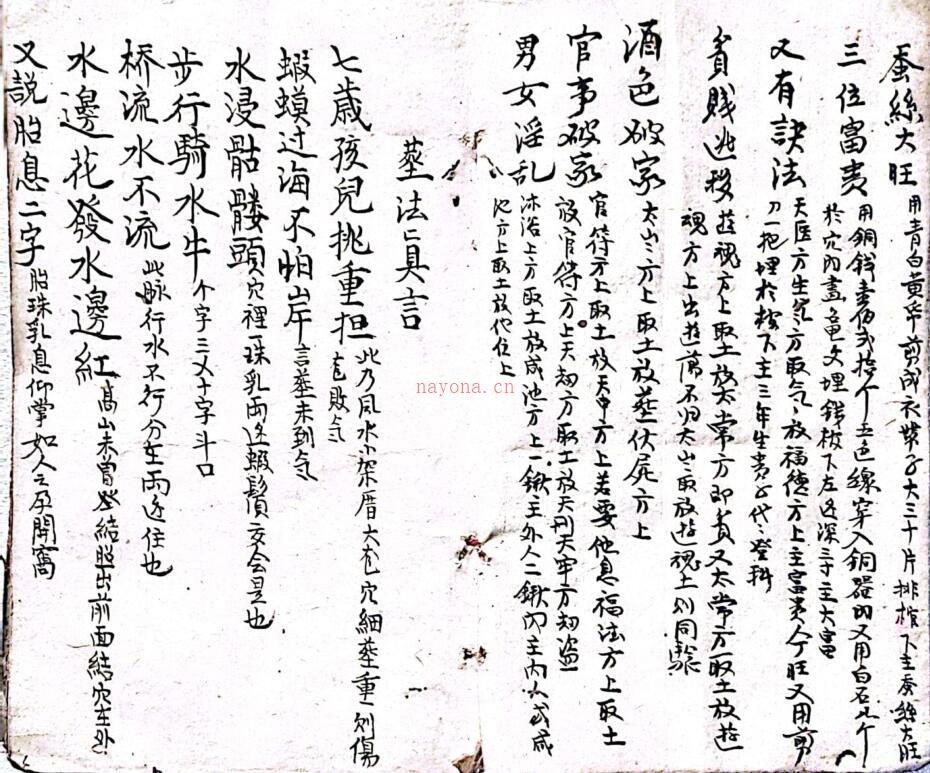 蚕絲大旺 用青白黄帋剪成衣帶子大三十片排棺下主蚕絲大旺
三位富貴 用銅錢壹伯弍拾个五色線穿入銅器内又用白石九个
於穴内畫龜文埋錢板下左边深三寸主大富
又有訣法 天医方生氣方取气々放福德方上主富貴人丁旺又用剪
刀一把埋於棺下主三年生貴子代々登科
貧賤逃移 遊魂方上取土放太常方即貧又太常方取土放遊
魂方上出遊蕩不归大山取放遊魂土則同驗
酒色破家 太山方上取土放塟伏屍方上
官事破家 官符方上取土放天中方上若要他息福法方上取土
放官符方上天刼方取土放天刑天牢方刼盗
男女淫乱 沐浴上方取土放咸池方上一鍬主外人二鍬内主内人或咸
池方上取土放他位上
塟法真言
七歲孩兒挑重担 此乃風水小架厝大尨穴細塟重則傷
尨敗气
蝦蟆过海不怕岸 言塟未到气
水浸骷髏頭 穴裡一珠乳兩边蝦鬚交会是也
步行騎水牛 个字三义十字斗口
桥流水不流 此脉行水不行分在兩边住也
水邊花發水邊紅 高山未曾坐結照出前面結穴在外
又説胎息二字 胎珠乳息仰掌如人之孕開窩
nayona.cn